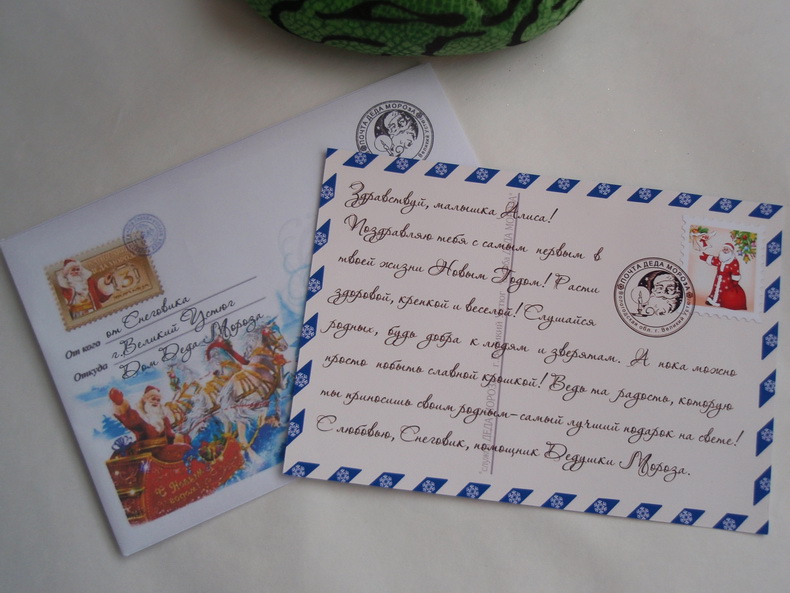 ПОЧТА ДЕДА МОРОЗА
От кого от Снеговика
Откуда г.Великий Устюг
Дом Деда Мороза
Здравствуй, малышка Алиса!
Поздравляю тебя с самым первым в
твоей жизни Новым Годом! Расти
здоровой, крепкой и веселой! Слушайся
родных, будь добра к людям и зверятам. А пока можно
просто побыть славной крошкой! Ведь та радость, которую
ты приносишь своим родным-самый лучший подарок на свете!
С любовью, Снеговик, помощник Дедушки Мороза.
ПОЧТА ДЕДА МОРОЗА
Вологодская обл. г. Великий Устюг